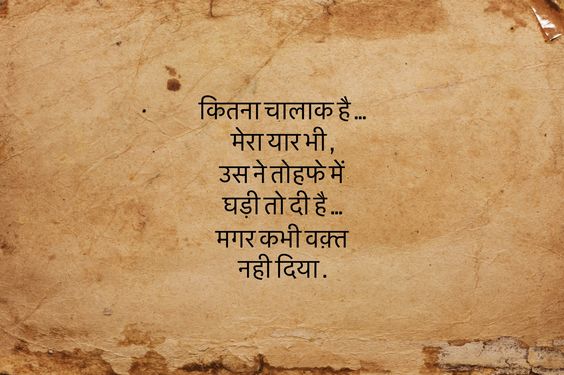 कितना चालाक है...
मेरा यार भी,
उस ने तोहफे में
घड़ी तो दी है...
मगर कभी वक़्त
नही दिया.